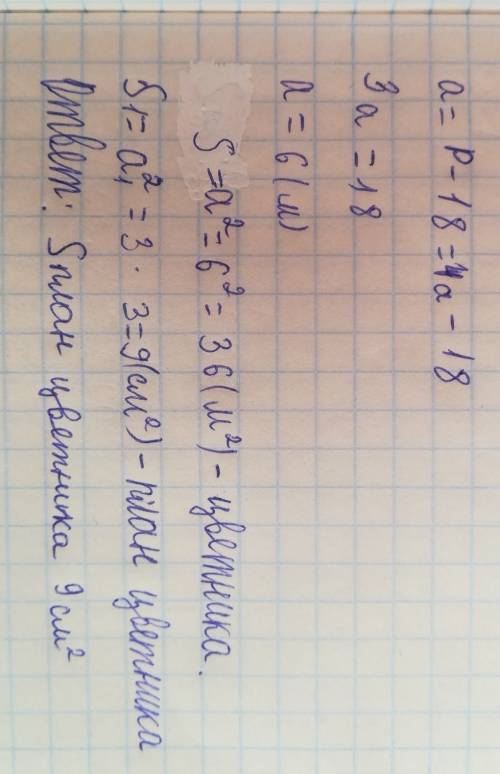 a = P - 18 = 4a - 18
3a = 18
a = 6 (м)
S = a² = 6² = 36 (м²) - цветника.
S₁ = a₁² = 3 · 3 = 9 (см²) - план цветника
Ответ: S план цветника 9 см²